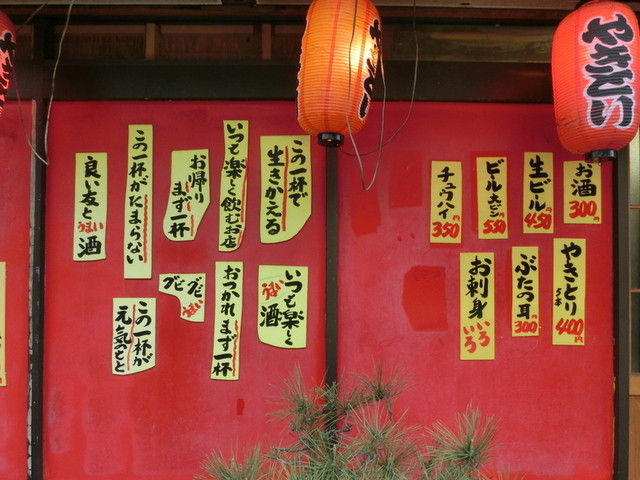 やきとり
お酒
300円
生ビール
450円
ビール大ビン
550円
チュウハイ
350円
やきとり
5本
400円
ぶたの耳
300円
お刺身
いろいろ
この一杯で
生きかえる
いつも楽しく飲むお店
お帰り
まず一杯
この一杯がたまらない
良い友と
うまい
酒
いつも楽しく
うまい
酒
おつかれまず一杯
グビグビ
うまい
この一杯が
元気のもと